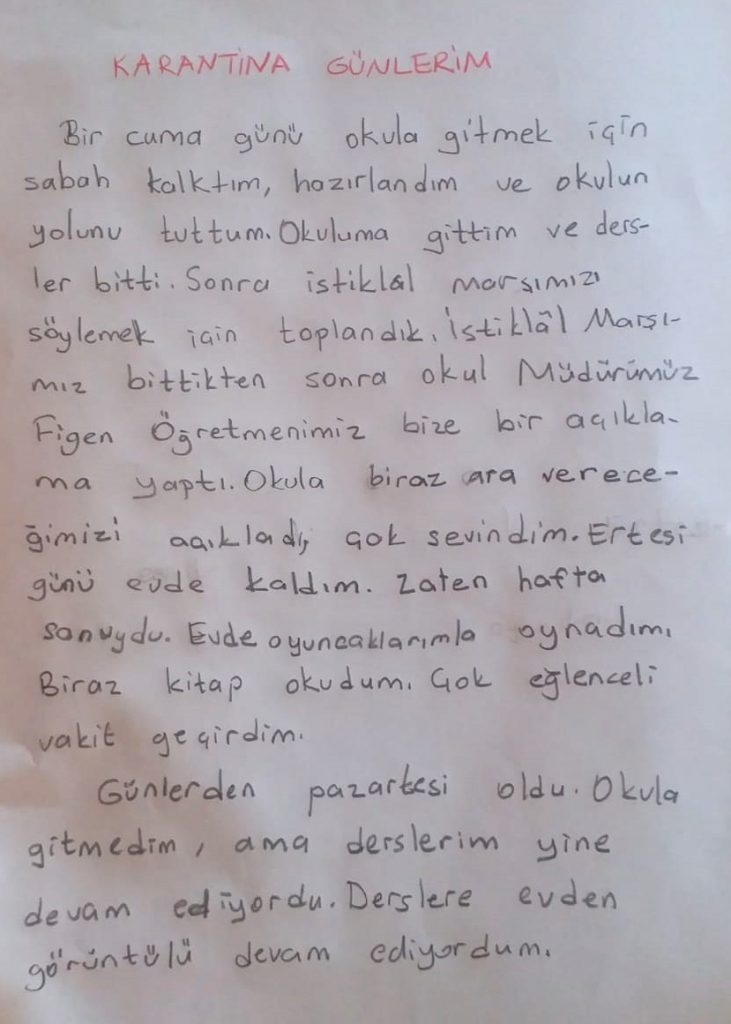 KARANTİNA GÜNLERİM
Bir cuma günü okula gitmek için
sabah kalktım, hazırlandım ve okulun
yolunu tuttum. Okuluma gittim ve ders-
ler bitti. Sonra istiklal marşımızı
söylemek için toplandık. İstiklâl Marşı-
mız bittikten sonra okul Müdürümüz
Figen Öğretmenimiz bize bir açıkla-
ma yaptı. Okula biraz ara verece-
ğimizi açıkladı, çok sevindim. Ertesi
günü evde kaldım. Zaten hafta
sonuydu. Evde oyuncaklarımla oynadım.
Biraz kitap okudum. Çok eğlenceli
vakit geçirdim.
Günlerden pazartesi oldu. Okula
gitmedim, ama derslerim yine
devam ediyordu. Derslere evden
görüntülü devam ediyordum.